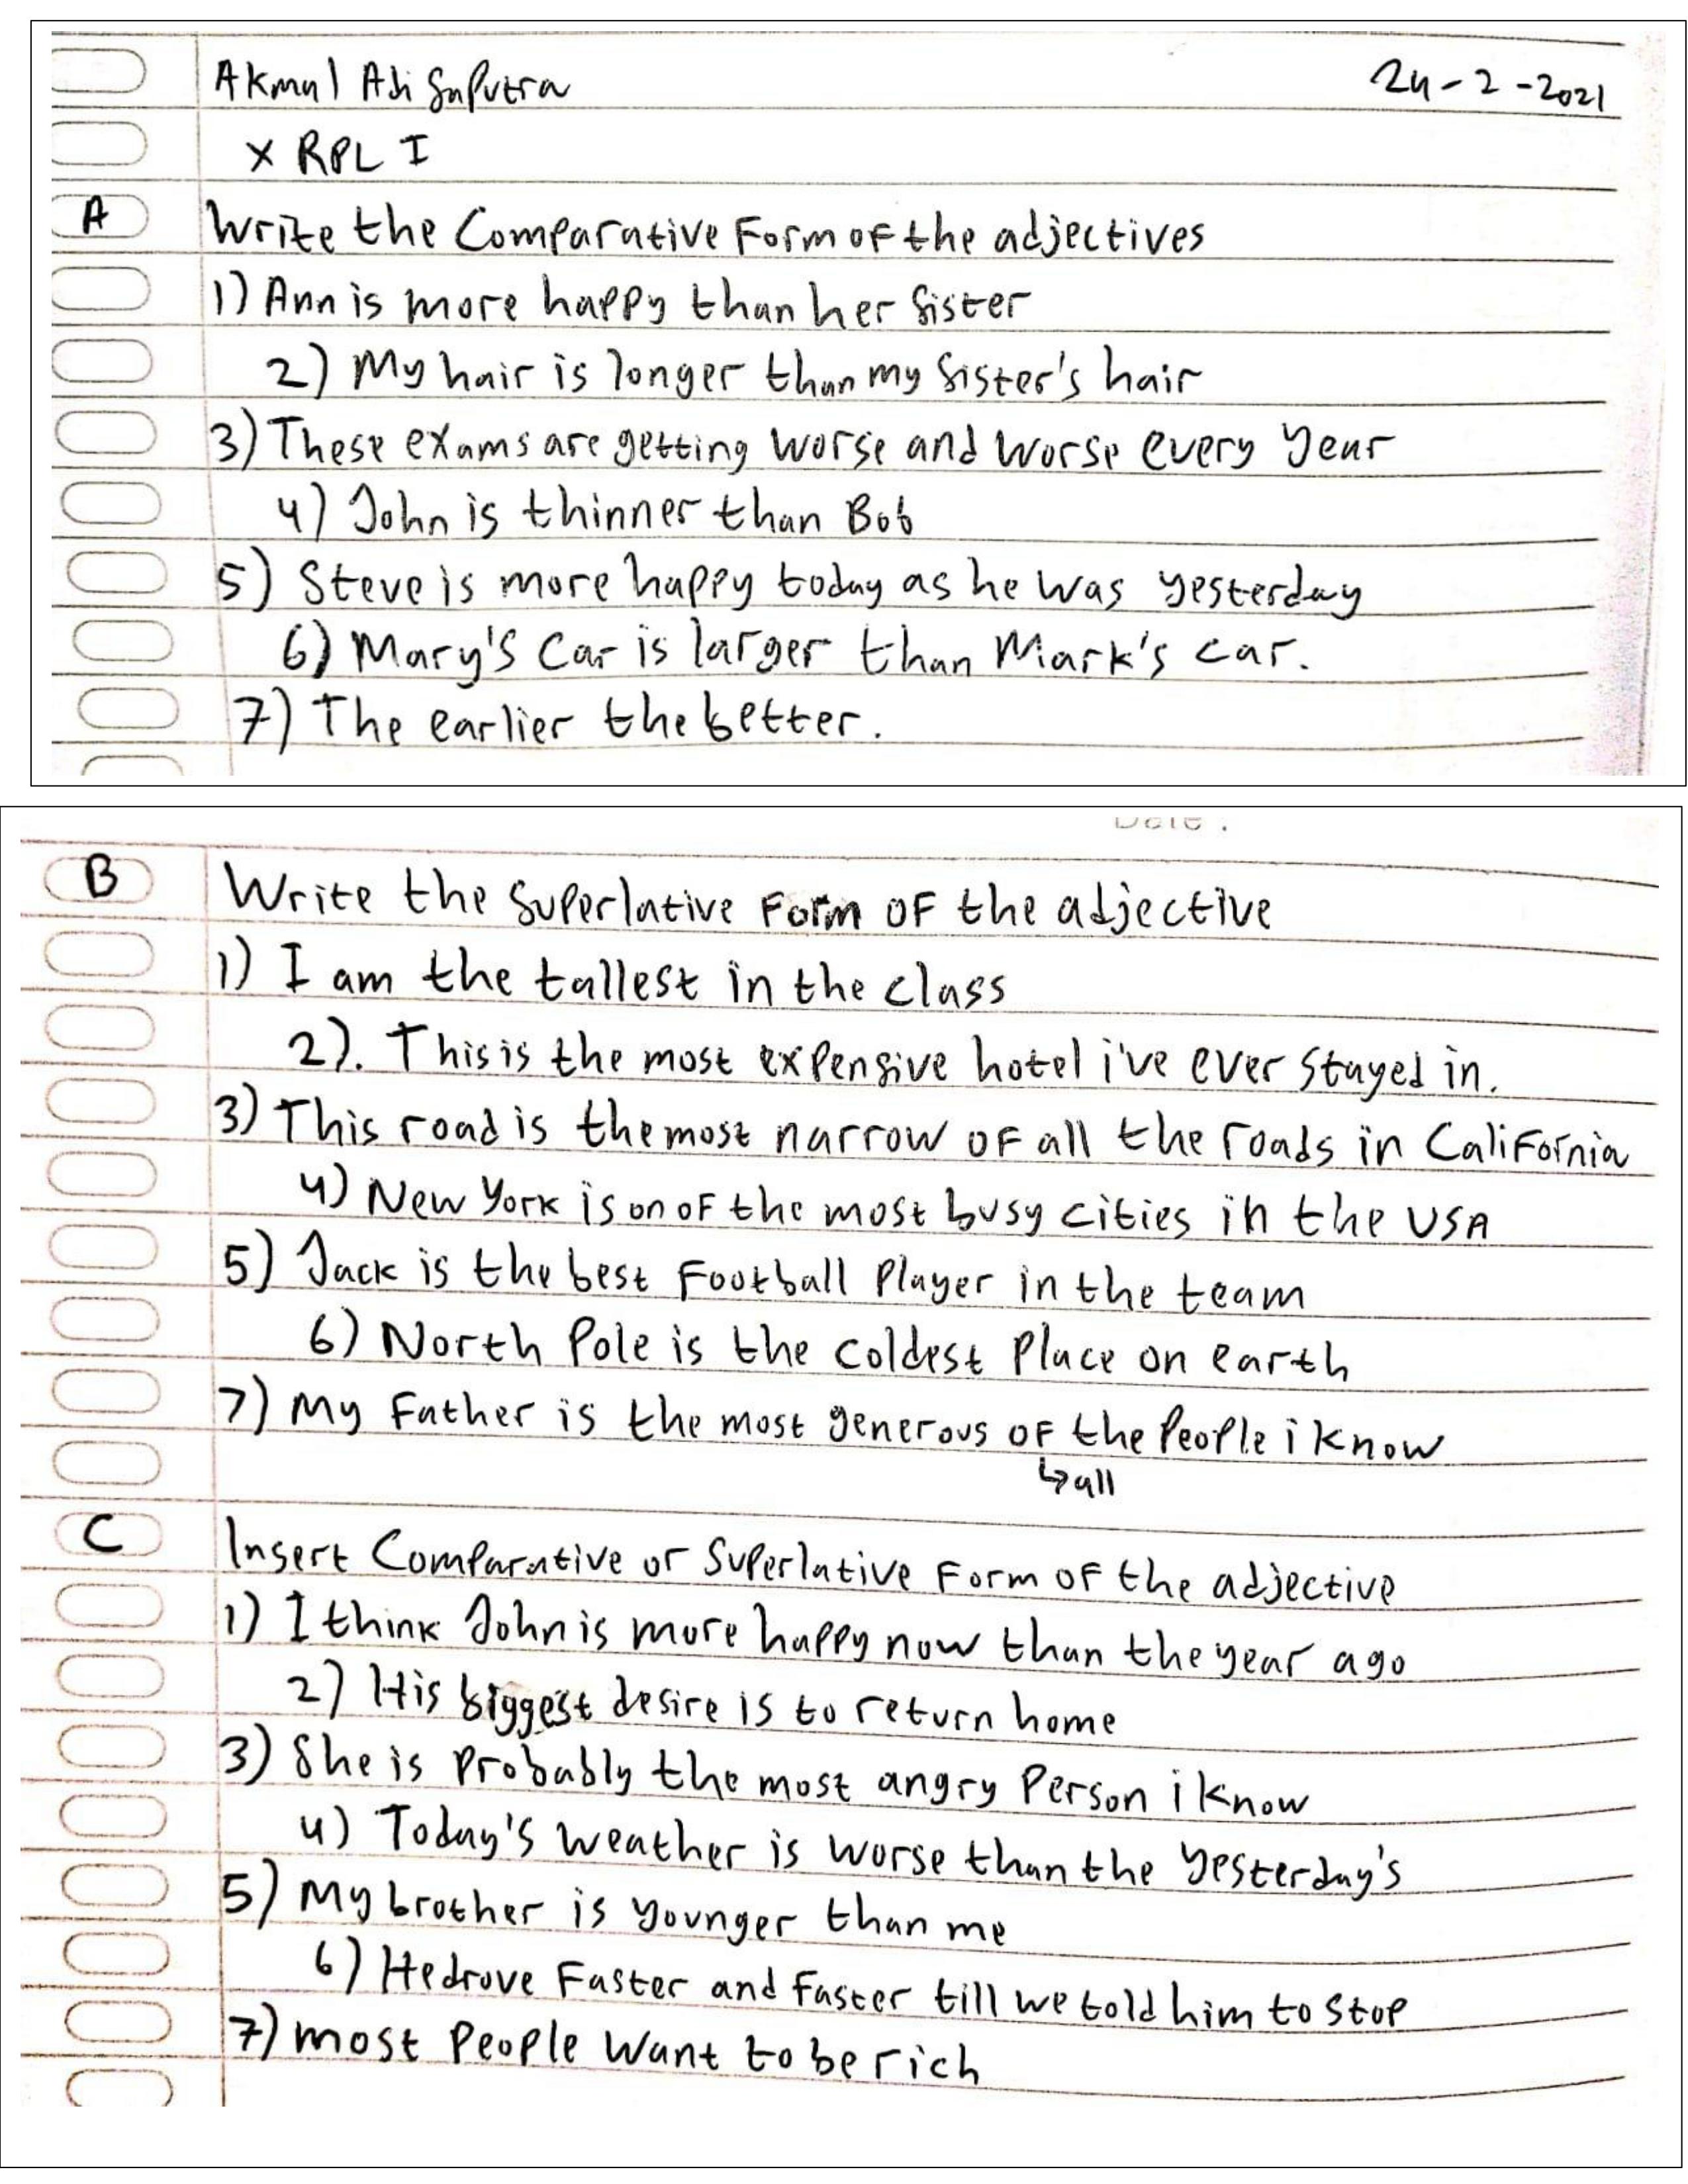 Akmal Adi Saputra 24-2-2021
X RPL I
A Write the Comparative Form of the adjectives
1) Ann is more happy than her sister
2) My hair is longer than my sister's hair
3) These exams are getting worse and worse every year
4) John is thinner than Bob
5) Steve is more happy today as he was yesterday
6) Mary's Car is larger than Mark's car.
7) The earlier the better.
Date.
B Write the Superlative Form OF the adjective
1) I am the tallest in the class
2). This is the most expensive hotel i've ever stayed in.
3) This road is the most narrow OF all the roads in California
4) New York is on OF the most busy cities in the USA
5) Jack is the best Football Player in the team
6) North Pole is the coldest Place on earth
7) My Father is the most generous OF the People i know
↳ all
C Insert Comparative or Superlative Form OF the adjective
1) I think John is more happy now than the year ago
2) His biggest desire is to return home
3) She is Probably the most angry Person i know
4) Today's weather is worse than the yesterday's
5) My brother is younger than me
6) He drove Faster and Faster till we told him to stop
7) most People Want to be rich